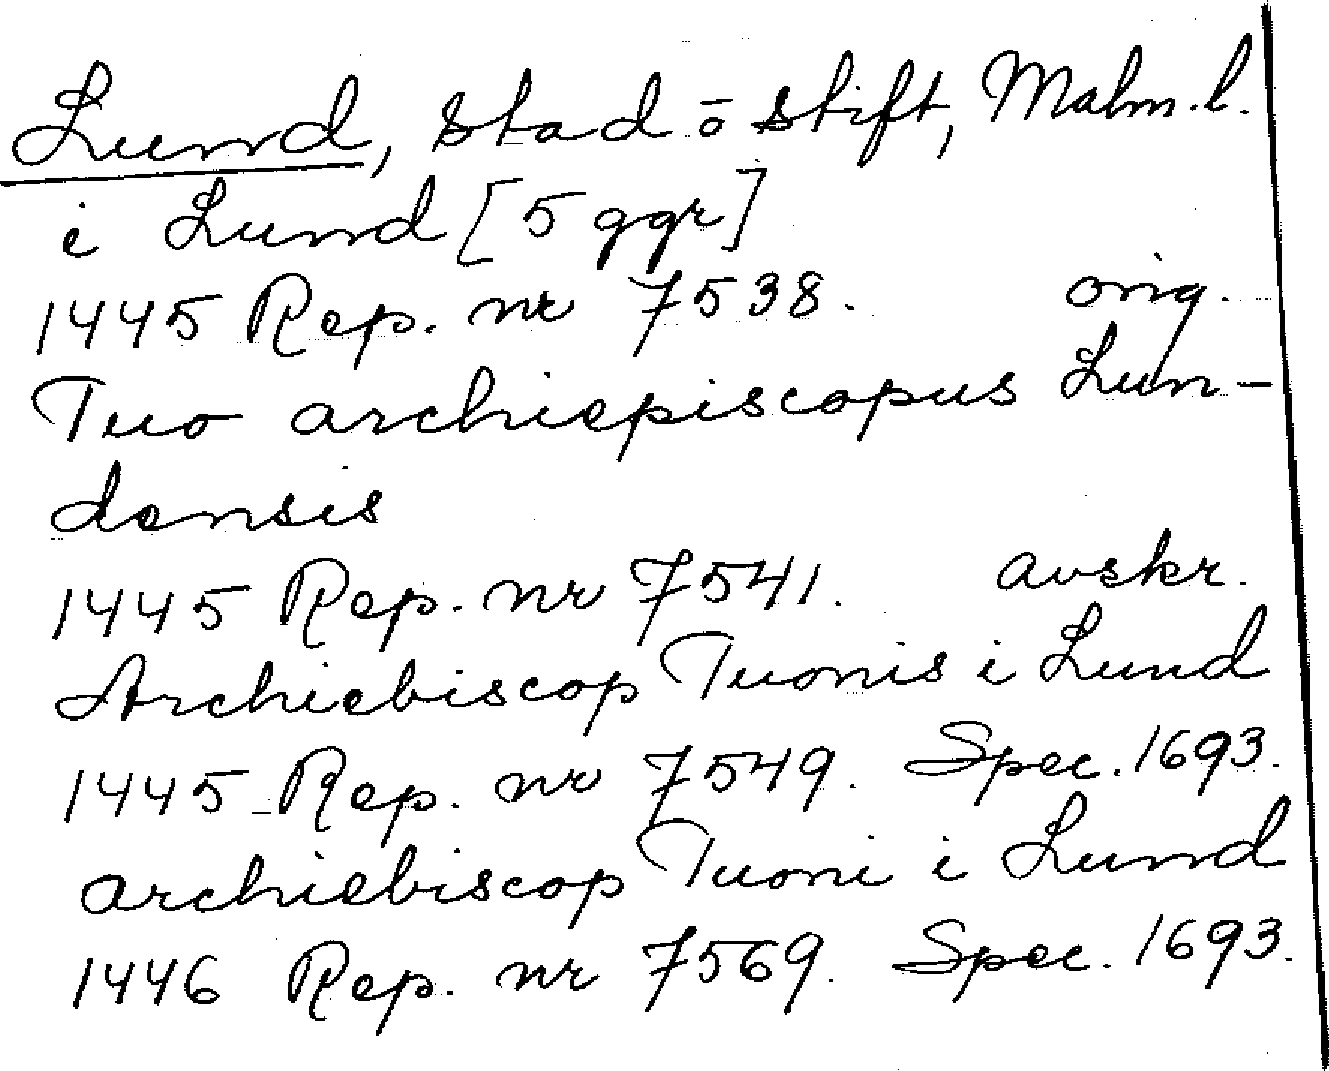 Lund, stad ō stift, Malm.l.
i Lund [5 ggr]
1445 Rep. nr 7538. orig.
Tuo archiepiscopus Lun-
densis
1445 Rep. nr 7541. avskr.
Archiebiscop Tuonis i Lund
1445 Rep. nr 7549. Spec. 1693.
archiebiscop Tuoni i Lund
1446 Rep. nr 7569. Spec. 1693.